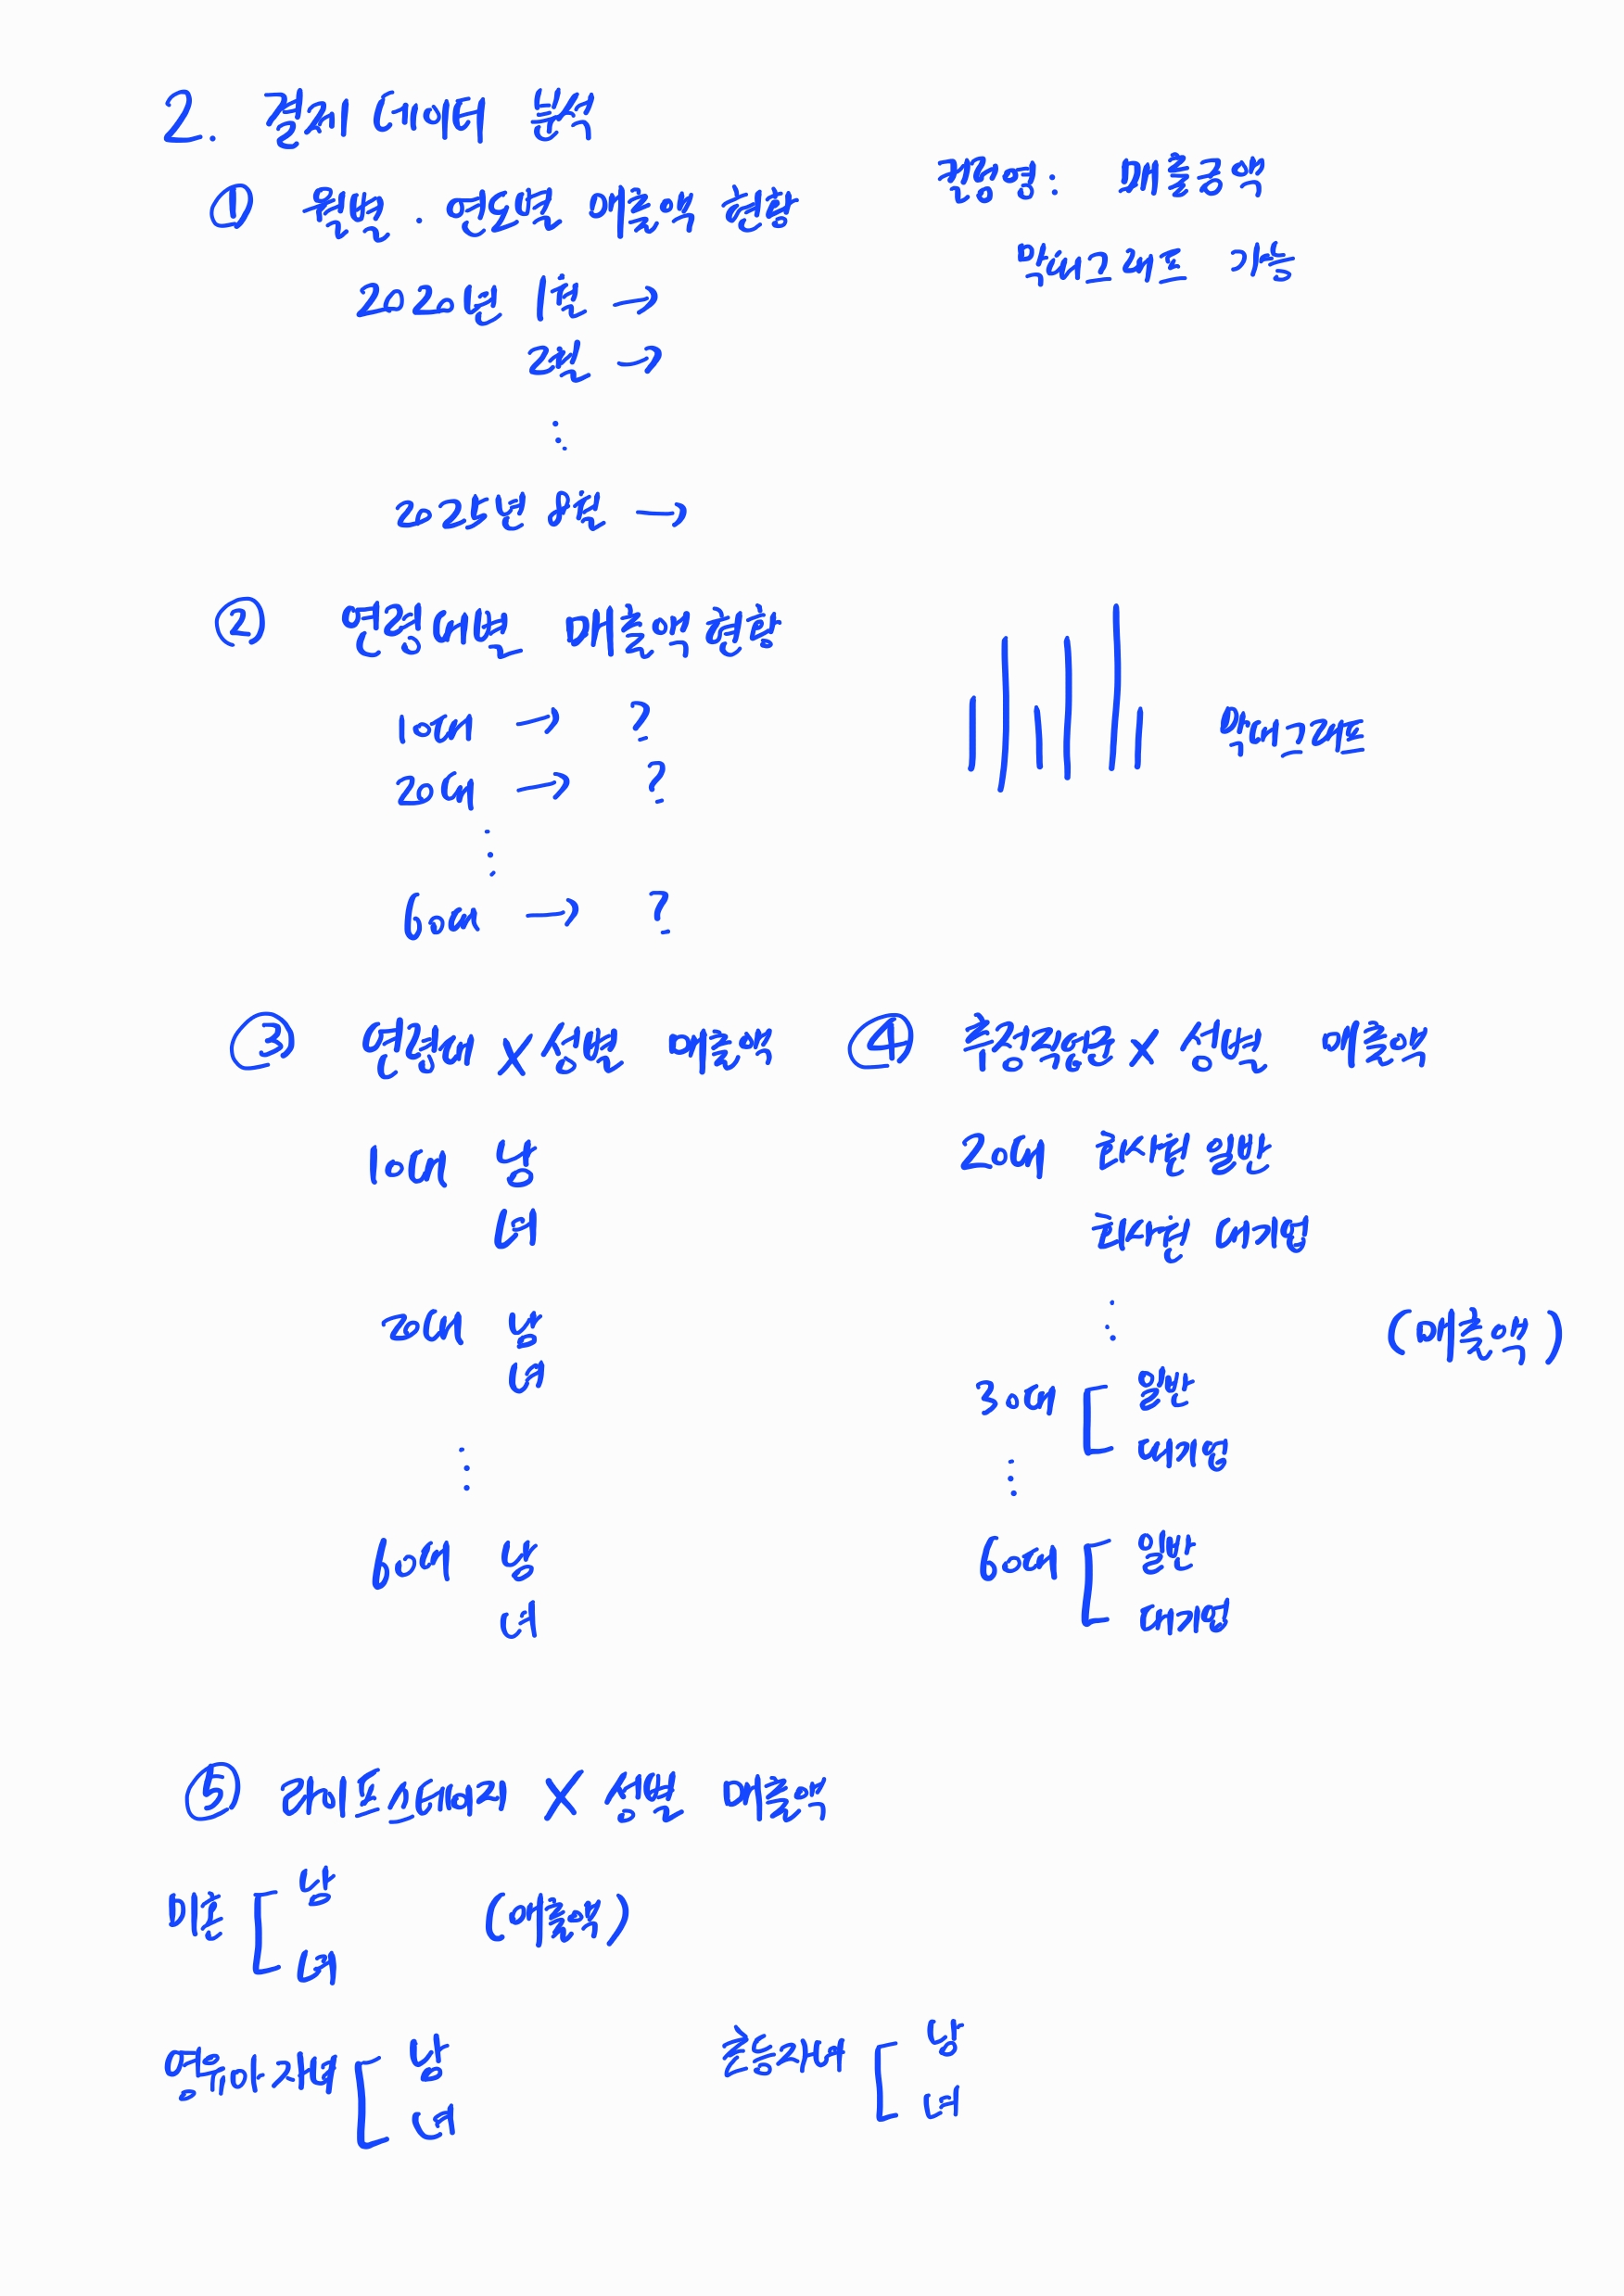 2. 결제 데이터 분석
① 월별 · 연도별 매출액 현황
컬럼명: 매출금액
막대그래프 가능
2020년 1월 →
2월 →
⋮
2025년 8월 →
② 연령대별 매출액 현황
10대 → ?
20대 → ?
⋮
60대 → ?
막대그래프
③ 연령대 X 성별 매출액
10대 남
녀
20대 남
녀
⋮
60대 남
녀
④ 추정직업군 X 성별 매출액
20대 회사원 일반
회사원 대기업
⋮
(매출액)
30대 [ 일반
대기업
⋮
60대 [ 일반
대기업
⑤ 라이프스테이지 X 성별 매출액
미혼 [ 남
녀
(매출액)
영유아자녀 [ 남
녀
초등자녀 [ 남
녀